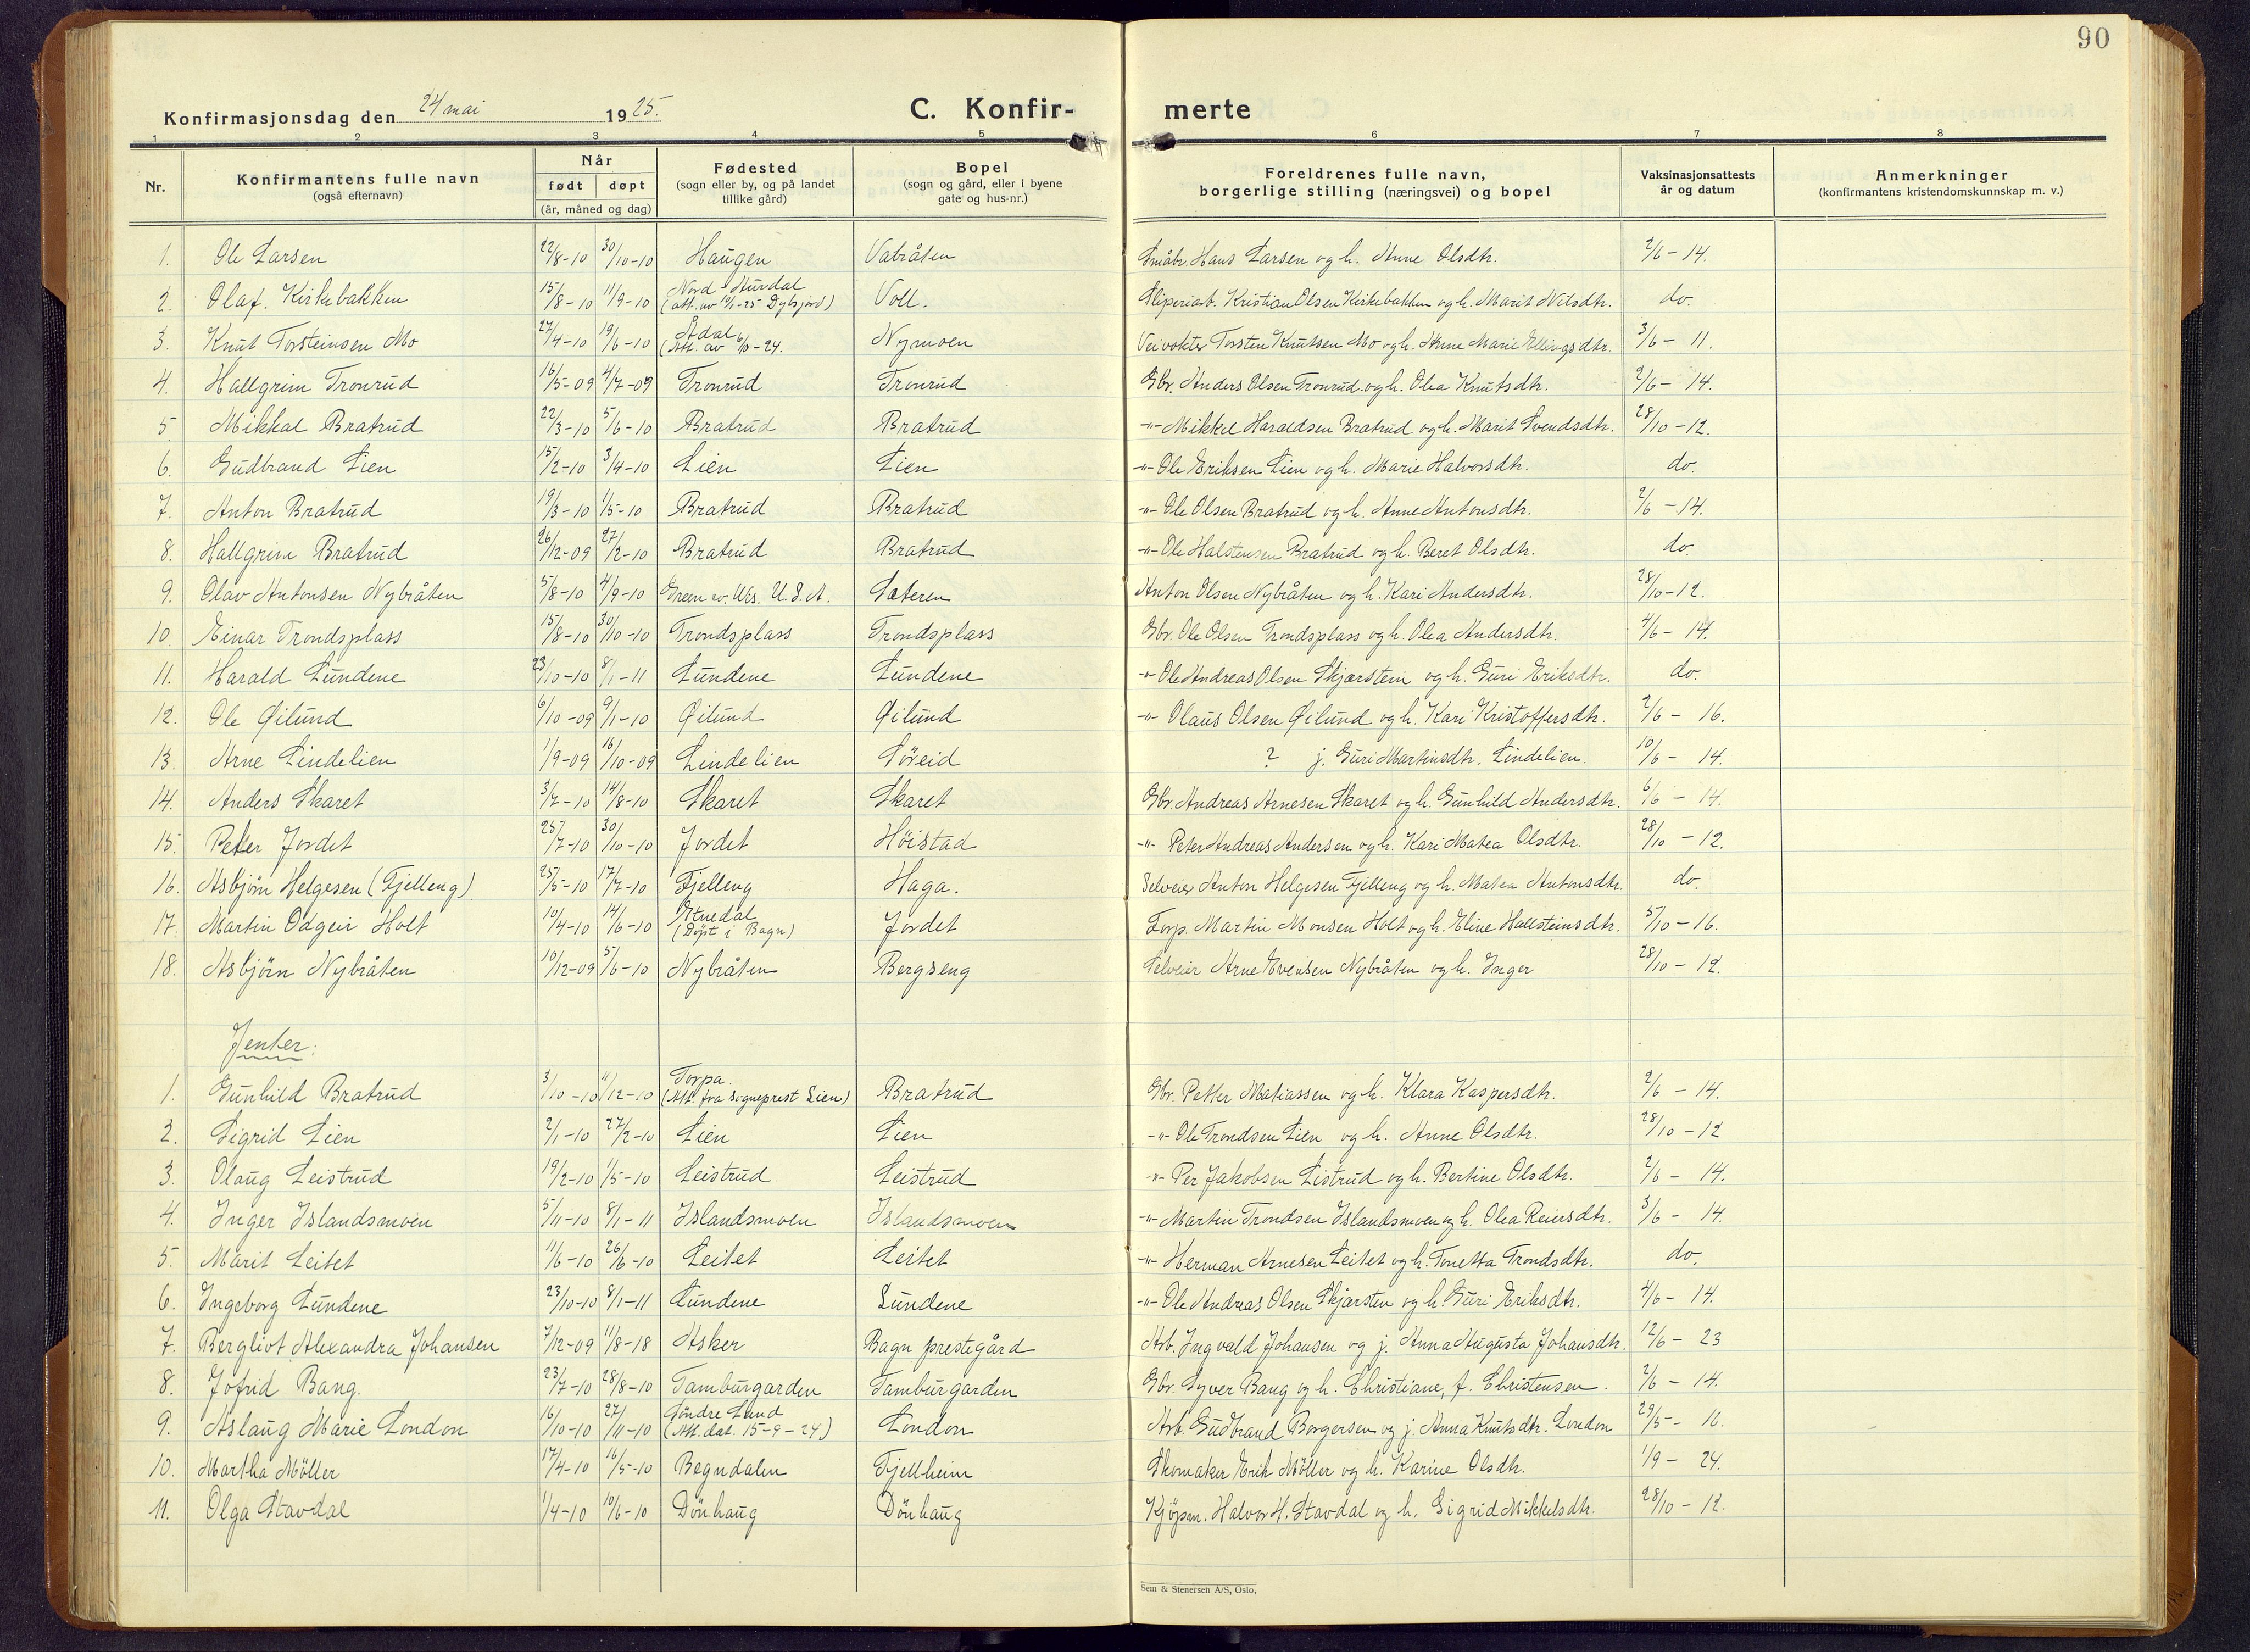 90
Konfirmasjonsdag den 24 mai 1925. C. Konfir- merte
1 2 3 4 5 6 7 8
Nr. Konfirmantens fulle navn (også efternavn) Når født døpt (år, måned og dag) Fødested (sogn eller by, og på landet tillike gård) Bopel (sogn og gård, eller i byene gate og hus-nr.) Foreldrenes fulle navn, borgerlige stilling (næringsvei) og bopel Vaksinasjonsattests år og datum Anmerkninger (konfirmantens kristendomskunnskap m. v.)
1. Ole Larsen 22/8-10 30/10-10 Haugen Vabråten Småbr. Hans Larsen og h. Anne Olsdtr. 2/6-14.
2. Olaf. Kirkebakken 15/8-10 11/9-10 Nord Aurdal (att. av 19/1-25 Dybsjord) Voll. Sliperiarb. Kristian Olsen Kirkebakken og h. Marit Nilsdtr. do.
3. Knut Torsteinsen Mo 27/4-10 19/6-10 Ådal (Att. av 6/10-24. Nymoen Veivokter Torsten Knutsen Mo og h. Anne Marie Ellingsdtr. 3/6-11.
4. Hallgrim Tronrud 16/5-09 4/7-09 Tronrud Tronrud Gbr. Anders Olsen Tronrud og h. Olea Knutsdtr. 2/6-14.
5. Mikkal Bratrud 22/3-10 5/6-10 Bratrud Bratrud -"- Mikkel Haraldsen Bratrud og h. Marit Svendsdtr. 28/10-12.
6. Gudbrand Lien 15/2-10 3/4-10 Lien Lien -"- Ole Eriksen Lien og h. Marie Halvorsdtr. do.
7. Anton Bratrud 19/3-10 1/5-10 Bratrud Bratrud -"- Ole Olsen Bratrud og h. Anne Antonsdtr. 2/6-14.
8. Hallgrim Bratrud 26/12-09 27/2-10 Bratrud Bratrud -"- Ole Halstensen Bratrud og h. Beret Olsdtr. do.
9. Olav Antonsen Nybråten 5/8-10 4/9-10 Green w. Wis. U.S.A. Sæteren Anton Olsen Nybråten og h. Kari Andersdtr. 28/10-12.
10. Einar Trondsplass 15/8-10 30/10-10 Trondsplass Trondsplass Gbr. Ole Olsen Trondsplass og h. Olea Andersdtr. 4/6-14.
11. Harald Lundene 23/10-10 8/1-11 Lundene Lundene -"- Ole Andreas Olsen Skjærstein og h. Guri Eriksdtr. do.
12. Ole Øilund 6/10-09 9/1-10 Øilund Øilund -"- Olaus Olsen Øilund og h. Kari Kristoffersdtr. 2/6-16.
13. Arne Lindelien 1/9-09 16/10-09 Lindelien Söreid ? j. Guri Martinsdtr. Lindelien. 10/6-14.
14. Anders Skaret 3/7-10 14/8-10 Skaret Skaret Gbr. Andreas Arnesen Skaret og h. Gunhild Andersdtr. 6/6-14.
15. Petter Jordet 25/7-10 30/10-10 Jordet Höistad -"- Peter Andreas Andersen og h. Kari Matea Olsdtr. 28/10-12.
16. Asbjörn Helgesen (Fjelleng) 25/5-10 17/7-10 Fjelleng Haga. Selveier Anton Helgesen Fjelleng og h. Matea Antonsdtr. do.
17. Martin Odgeir Holt 10/4-10 14/6-10 Etnedal (Döpt i Bagn) Jordet Forp. Martin Monsen Holt og h. Eline Hallsteinsdtr. 5/10-16.
18. Asbjörn Nybråten 10/12-09 5/6-10 Nybråten Bergseng Selveier Arne Evensen Nybråten og h. Inger 28/10-12.
Jenter:
1. Gunhild Bratrud 3/10-10 11/12-10 Torpa. (Att. fra sogneprest Lien) Bratrud Gbr. Petter Matiassen og h. Klara Kaspersdtr. 2/6-14.
2. Sigrid Lien 2/1-10 27/2-10 Lien Lien -"- Ole Trondsen Lien og h. Anne Olsdtr. 28/10-12
3. Olaug Leistrud 19/2-10 1/5-10 Leistrud Leistrud -"- Per Jakobsen Listrud og h. Bertine Olsdtr. 2/6-14.
4. Inger Islandsmoen 5/11-10 8/1-11 Islandsmoen Islandsmoen -"- Martin Trondsen Islandsmoen og h. Olea Reiersdtr. 3/6-14.
5. Marit Leitet 11/6-10 26/6-10 Leitet Leitet -"- Herman Arnesen Leitet og h. Tonetta Trondsdtr. do.
6. Ingeborg Lundene 23/10-10 8/1-11 Lundene Lundene -"- Ole Andreas Olsen Skjærsten og h. Guri Eriksdtr. 4/6-14.
7. Bergliot Alexandra Johansen 7/12-09 11/8-18 Asker Bagn prestegård Arb. Ingvald Johansen og j. Anna Augusta Johansdtr. 12/6-23
8. Jofrid Bang. 23/7-10 28/8-10 Tamburgarden Tamburgarden Gbr. Syver Bang og h. Christiane, f. Christensen. 2/6-14.
9. Aslaug Marie London 16/10-10 27/11-10 Söndre Land (Att. dat. 15-9-24) London Arb. Gudbrand Borgersen og j. Anna Knutsdtr. London 29/5-16.
10. Martha Möller 17/4-10 16/5-10 Begndalen Fjellheim Skomaker Erik Möller og h. Karine Olsdtr. 1/9-24.
11. Olga Stavdal 1/4-10 10/6-10 Dönhaug Dönhaug Kjöpm. Halvor H. Stavdal og h. Sigrid Mikkelsdtr. 28/10-12.
Sem & Stenersen A/S, Oslo.